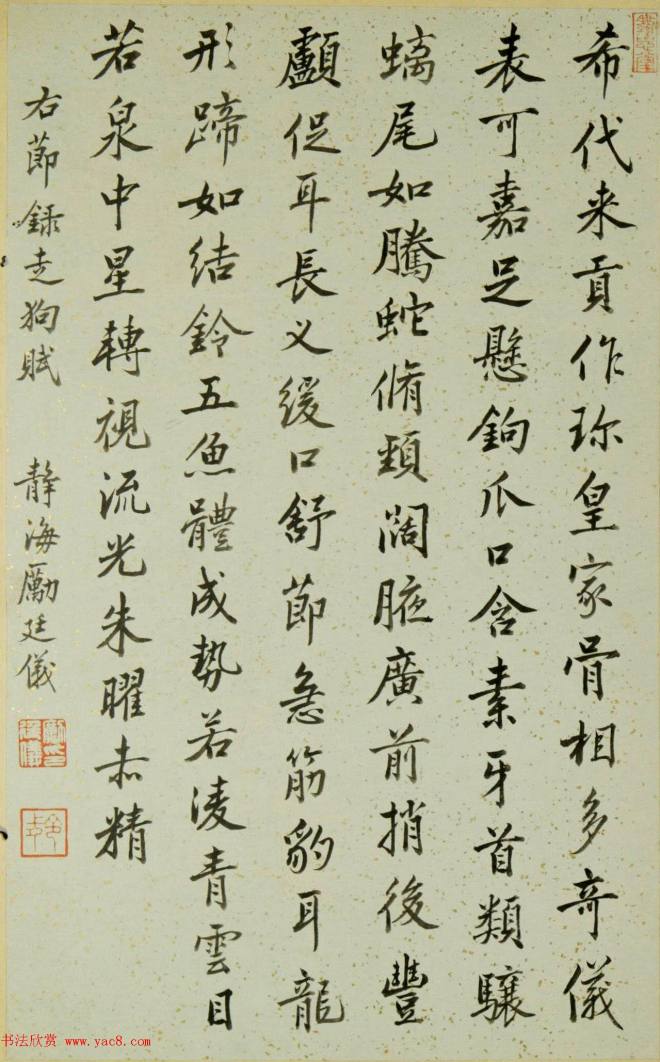 希代来貢作珎皇家骨相多奇儀
表可嘉足懸鉤爪口含素牙首類驤
螭尾如騰蛇脩頸闊腋廣前捎後豐
顱促耳長义緩口舒節急筋豹耳龍
形蹄如結鈴五魚體成勢若凌青雲目
若泉中星轉視流光朱曜赤精
右節錄走狗賦 静海勵廷儀
书法欣赏 www.yac8.com